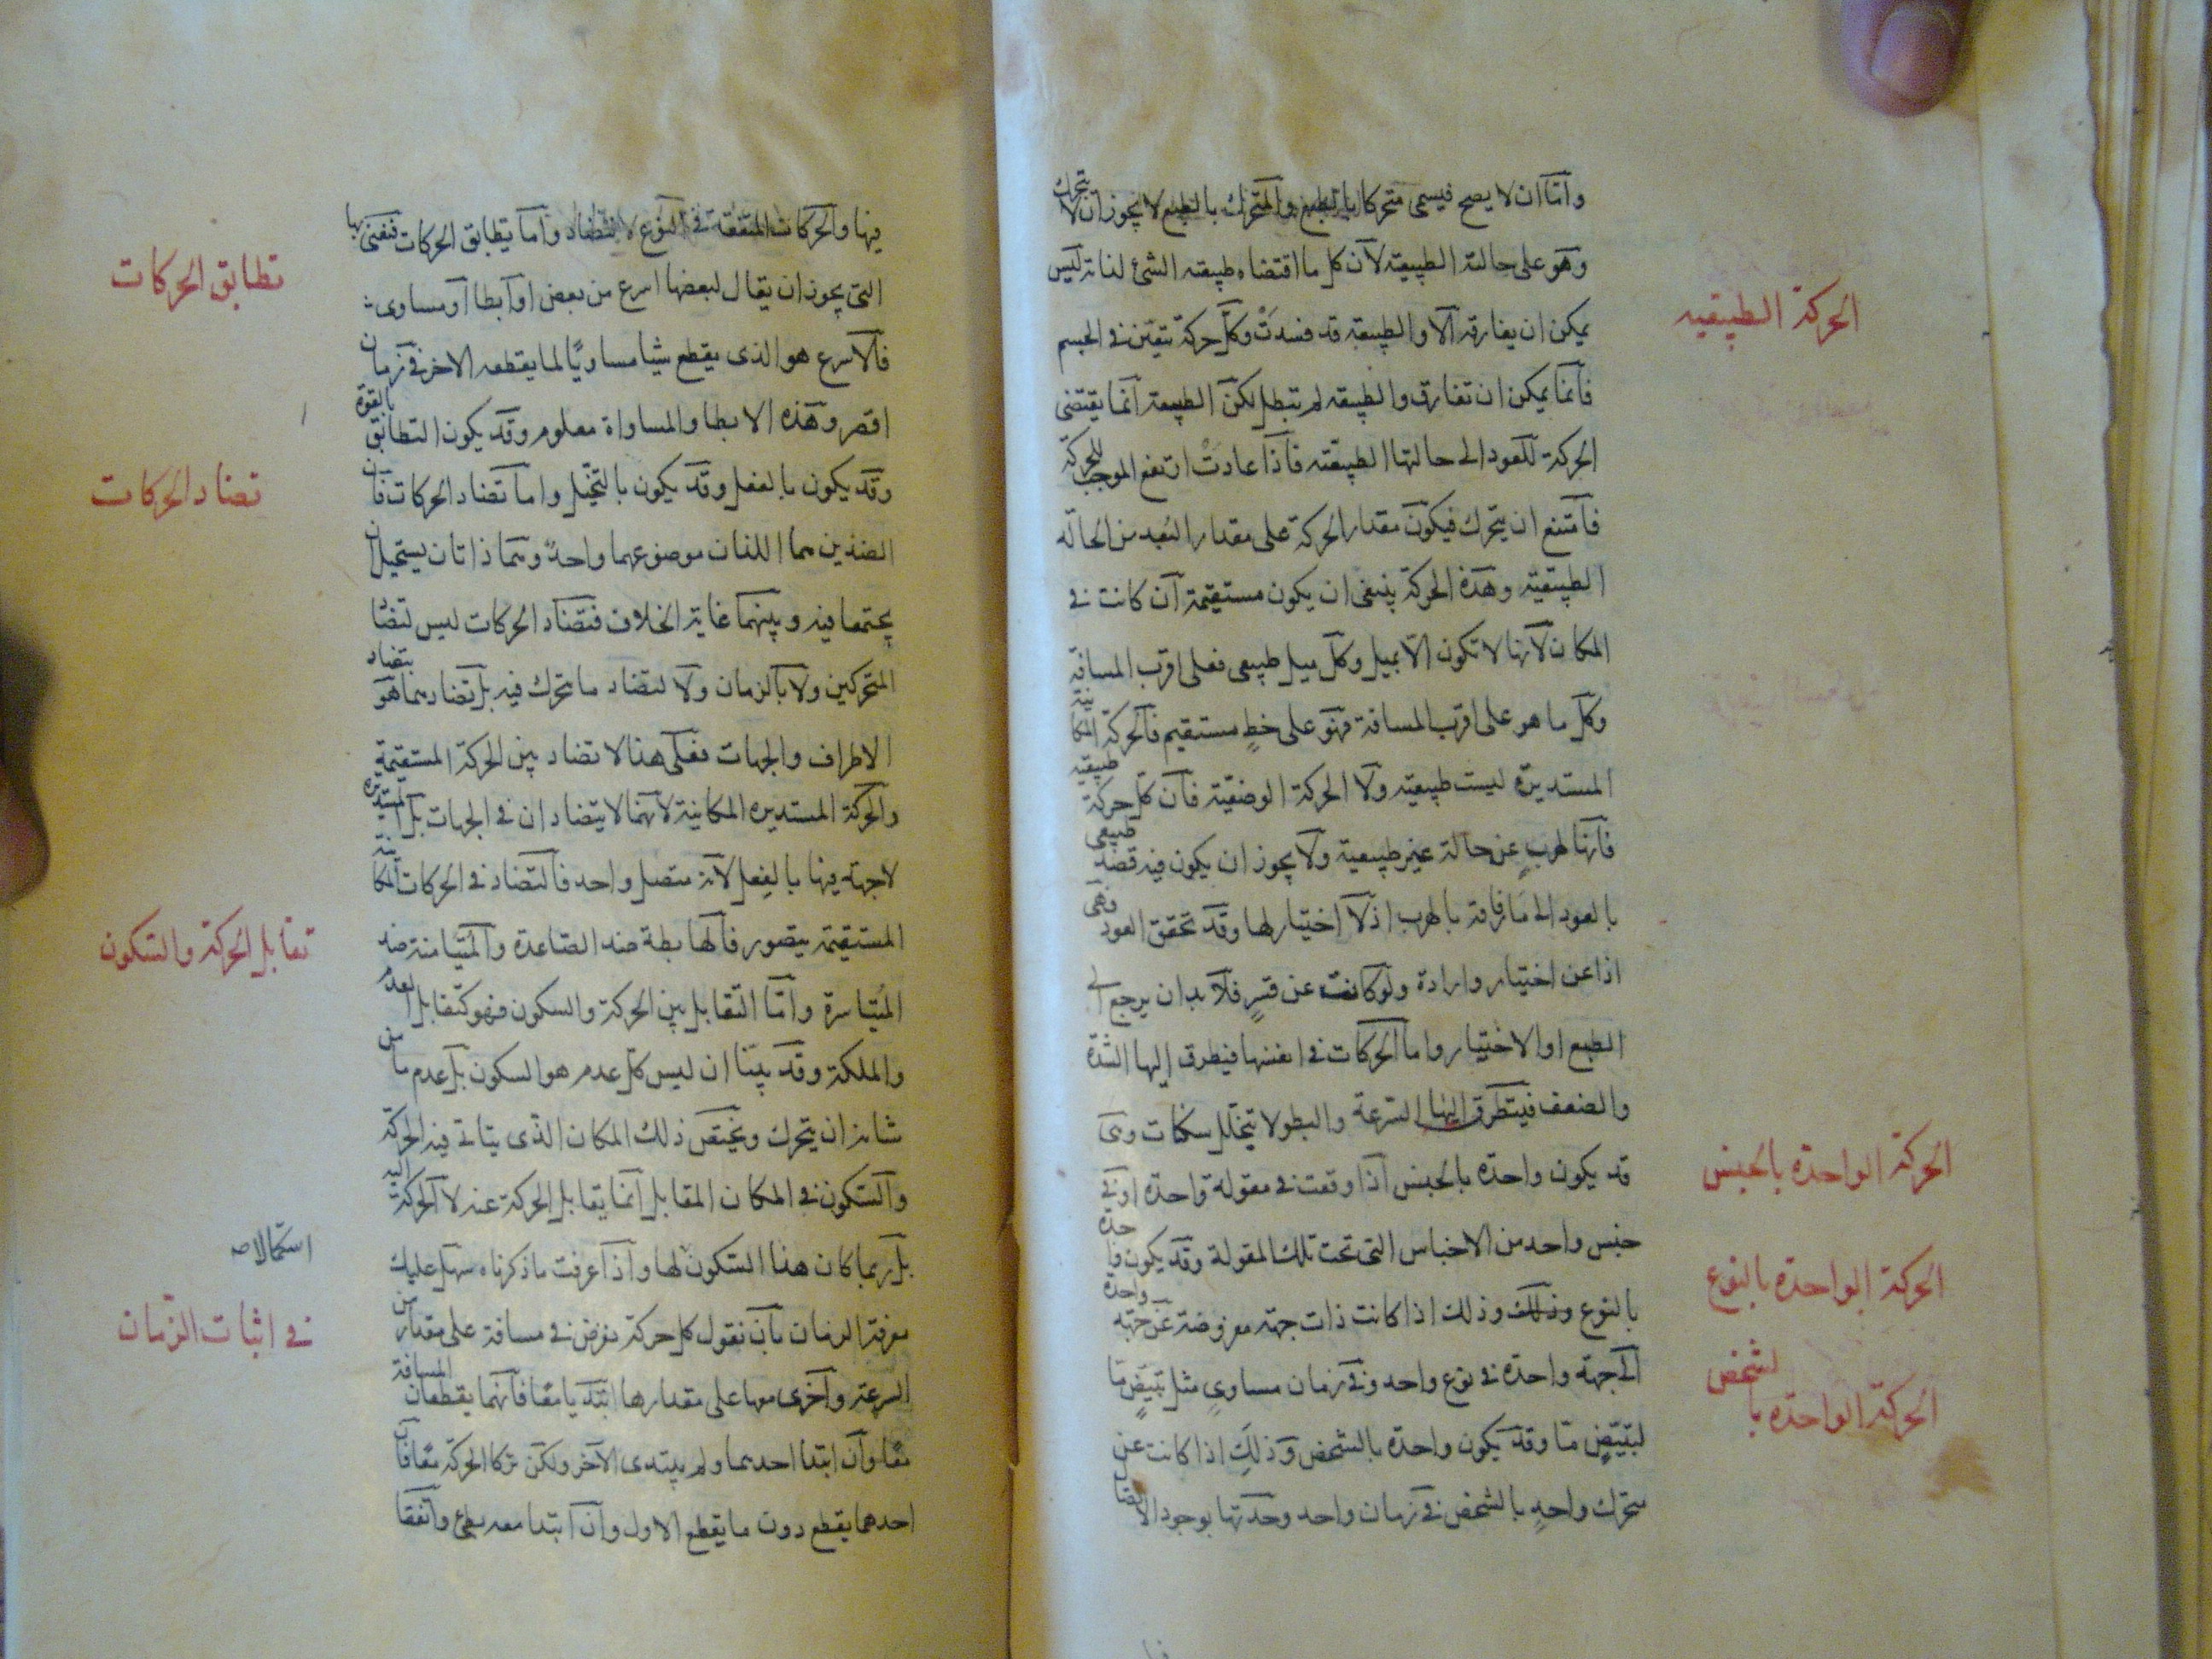 واما ان لا يصح فيسمى متحركا بالطبع والمتحرك بالطبع لا يجوز ان لا يتحرك
وهو على حالته الطبيعية لان كل ما اقتضاه طبيعته الشئ لذاته ليس
يمكن ان يفارقه الا والطبيعة قد فسدت وكل حركة تتعين في الجسم
فانما يمكن ان تفارق والطبيعه لم تبطل لكن الطبيعة انما يقتضى
الحركة للعود الى حالتها الطبيعته فاذا عادت ارتفع الموجب للحركة
فامتنع ان يتحرك فيكون مقدار الحركة على مقدار البعد من الحاله
الطبيعية وهذه الحركة ينبغى ان يكون مستقيمة ان كانت في
المكان لانها لا تكون الا بميل وكل ميل طبيعى فعلى اقرب المسافة
وكل ما هو على اقرب المسافة فهو على خط مستقيم فالحركة المكانية
المستديرة ليست طبيعية ولا الحركة الوضعية فان كل حركة طبيعية
فانها لهرب عن حالة غير طبيعية ولا يجوز ان يكون فيه قصد طبيعى
بالعود الى ما فارقته بالهرب اذ لا اختيار لها وقد تحقق العود فهى
اذا عن اختيار وارادة ولو كانت عن قسر فلا بد ان يرجع الى
الطبع او الاختيار واما الحركات في انفسها فيطرق اليها الشدة
والضعف فيتطرق اليها السرعة والبطو لا بتخلل سكنات وهى
قد يكون واحدة بالجنس اذا وقعت في مقولة واحدة او في
جنس واحد من الاجناس التى تحت تلك المقولة وقد يكون واحدة
بالنوع وذلك وذلك اذا كانت ذات جهة مفروضة عن جهة واحدة
الى جهة واحدة في نوع واحد وفي زمان مساوى مثل تبيض ما
لتبيض ما وقد يكون واحدة بالشخص وذلك اذا كانت عن
متحرك واحد بالشخص في زمان واحد وحدتها بوجود الاتصال
الحركة الطبيعيه
الحركة الواحدة بالجنس
الحركة الواحدة بالنوع
الحركة الواحدة بالشخص
فيها والحركات المتفقة في النوع لا تتضاد واما تطابق الحركات فنعنى بها
التى يجوز ان يقال لبعضها اسرع من بعض او ابطا او مساوى
فالاسرع هو الذى يقطع شيا مساويا لما يقطعه الاخر في زمان
اقصر وهذه الابطا والمساواة معلوم وقد يكون التطابق بالقوة
وقد يكون بالفعل وقد يكون بالتخيل واما تضاد الحركات فان
الضدين هما اللذان موضوعهما واحد وهما ذاتان يستحيل ان
يجتمعا فيه وبينهما غاية الخلاف فتضاد الحركات ليس لتضاد
المتحركين ولا بالزمان ولا لتضاد ما يتحرك فيه بل تضادهما هو بتضاد
الاطراف والجهات فعلى هذا لا تضاد بين الحركة المستقيمة
والحركة المستديره المكانية لانهما لا يتضادان في الجهات بل المستديرة
لاجهة فيها بالفعل لانه متصل واحد فالتضاد في الحركات المكانية
المستقيمة يتصور فالهابطة ضد الصاعدة والمتيامنة ضد
المتياسرة واما التقابل بين الحركة والسكون فهو كتقابل العدم
والملكة وقد بينا ان ليس كل عدم هو السكون بل عدم ما من
شانه ان يتحرك ويختص ذلك المكان الذى يتاتى فيه الحركة
والسكون في المكان المقابل انما يقابل الحركة عنه لا الحركة اليه
بل ربما كان هذا السكون لها واذا عرفت ما ذكرناه سهل عليك
معرفة الزمان بان نقول كل حركة نفرض في مسافة على مقدار من
السرعة واخرى معها على مقدارها ابتديا معا فانهما يقطعان المسافة
معا وان ابتدا احدهما ولم يبتدى الاخر ولكن تركا الحركة معا فان
احدهما يقطع دون ما يقطع الاول وان ابتدا معه بطئ واتفقا
تطابق الحركات
تضاد الحركات
تقابل الحركة والسكون
في اثبات الزمان